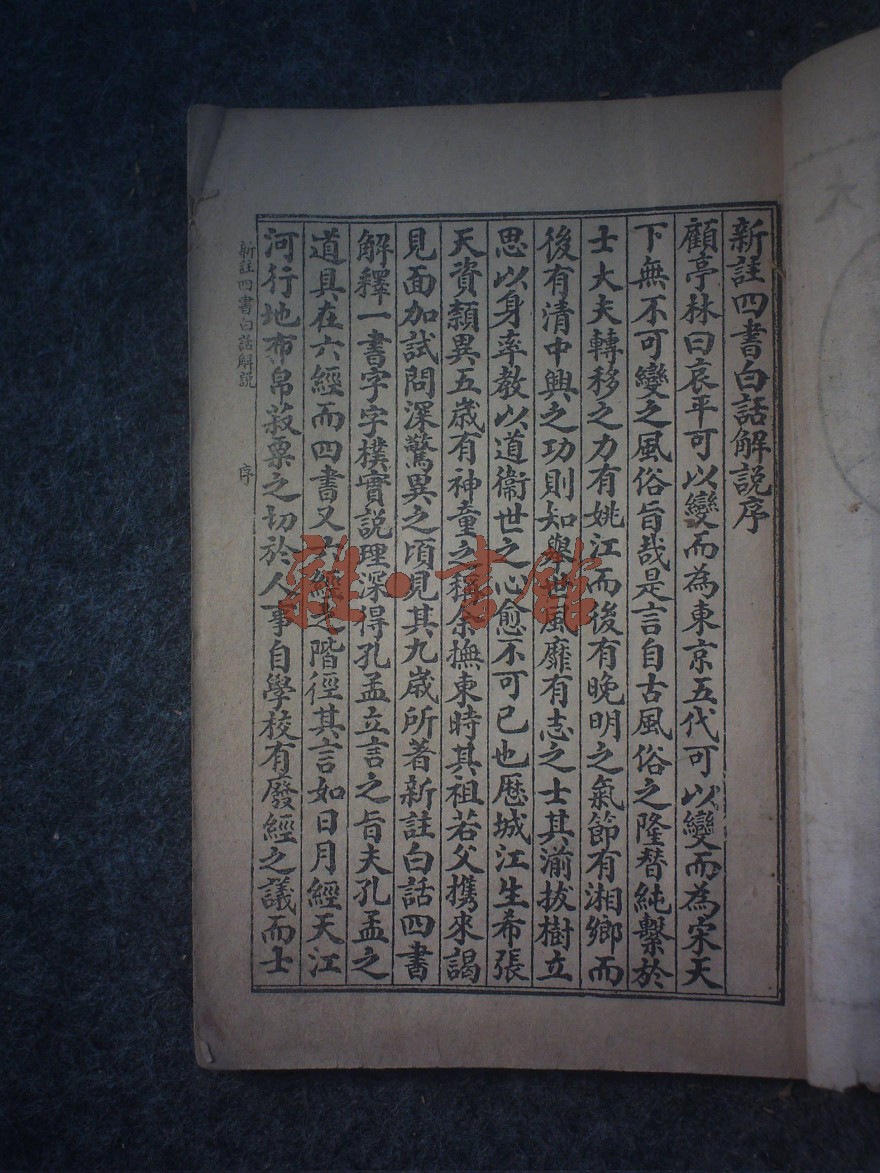 新註四書白話解説序
顧亭林曰哀平可以變而為東京五代可以變而為宋天
下無不可變之風俗旨哉是言自古風俗之隆替純繫於
士大夫轉移之力有姚江而後有晚明之氣節有湘鄉而
後有清中興之功則知舉世風靡有志之士其湔拔樹立
思以身率教以道衞世之心愈不可已也歷城江生希張
天資穎異五歲有神童之稱余撫東時其祖若父攜來謁
見面加試問深驚異之頃見其九歲所著新註白話四書
解釋一書字字樸實説理深得孔孟立言之旨夫孔孟之
道具在六經而四書又六經之階徑其言如日月經天江
河行地布帛菽粟之切於人事自學校有廢經之議而士
新註四書白話解説 序
雜·書館
大